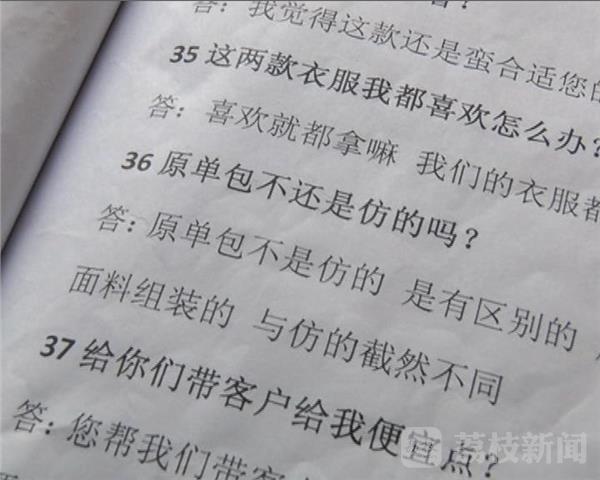 答：我觉得这款还是蛮合适您的
35 这两款衣服我都喜欢怎么办？
答：喜欢就都拿嘛 我们的衣服都
36 原单包不还是仿的吗？
答：原单包不是仿的 是有区别的
面料组装的 与仿的截然不同
37 给你们带客户给我便宜点？
答：您帮我们带客
荔枝新闻